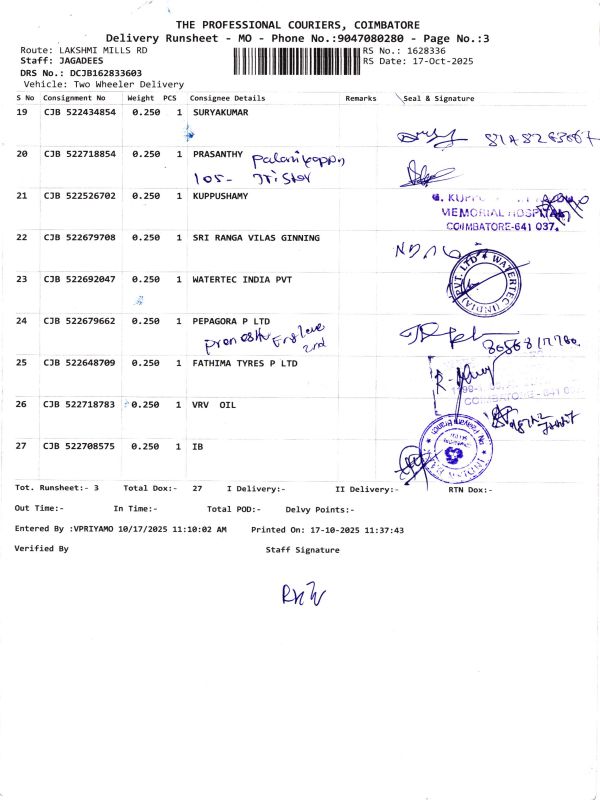 THE PROFESSIONAL COURIERS, COIMBATORE
Delivery Runsheet - MO - Phone No.:9047080280 - Page No.:3
Route: LAKSHMI MILLS RD RS No.: 1628336
Staff: JAGADEES RS Date: 17-Oct-2025
DRS No.: DCJB162833603
Vehicle: Two Wheeler Delivery
S No Consignment No Weight PCS Consignee Details Remarks Seal & Signature
19 CJB 522434854 0.250 1 SURYAKUMAR
20 CJB 522718854 0.250 1 PRASANTHY
105- Tristar
21 CJB 522526702 0.250 1 KUPPUSHAMY
MEMORIAL HOSPITAL
COIMBATORE-641 037.
22 CJB 522679708 0.250 1 SRI RANGA VILAS GINNING
23 CJB 522692047 0.250 1 WATERTEC INDIA PVT
WATERTEC (INDIA) PVT. LTD
24 CJB 522679662 0.250 1 PEPAGORA P LTD
2nd
25 CJB 522648709 0.250 1 FATHIMA TYRES P LTD
26 CJB 522718783 0.250 1 VRV OIL
27 CJB 522708575 0.250 1 IB
Tot. Runsheet:- 3 Total Dox:- 27 I Delivery:- II Delivery:- RTN Dox:-
Out Time:- In Time:- Total POD:- Delvy Points:-
Entered By :VPRIYAMO 10/17/2025 11:10:02 AM Printed On: 17-10-2025 11:37:43
Verified By Staff Signature